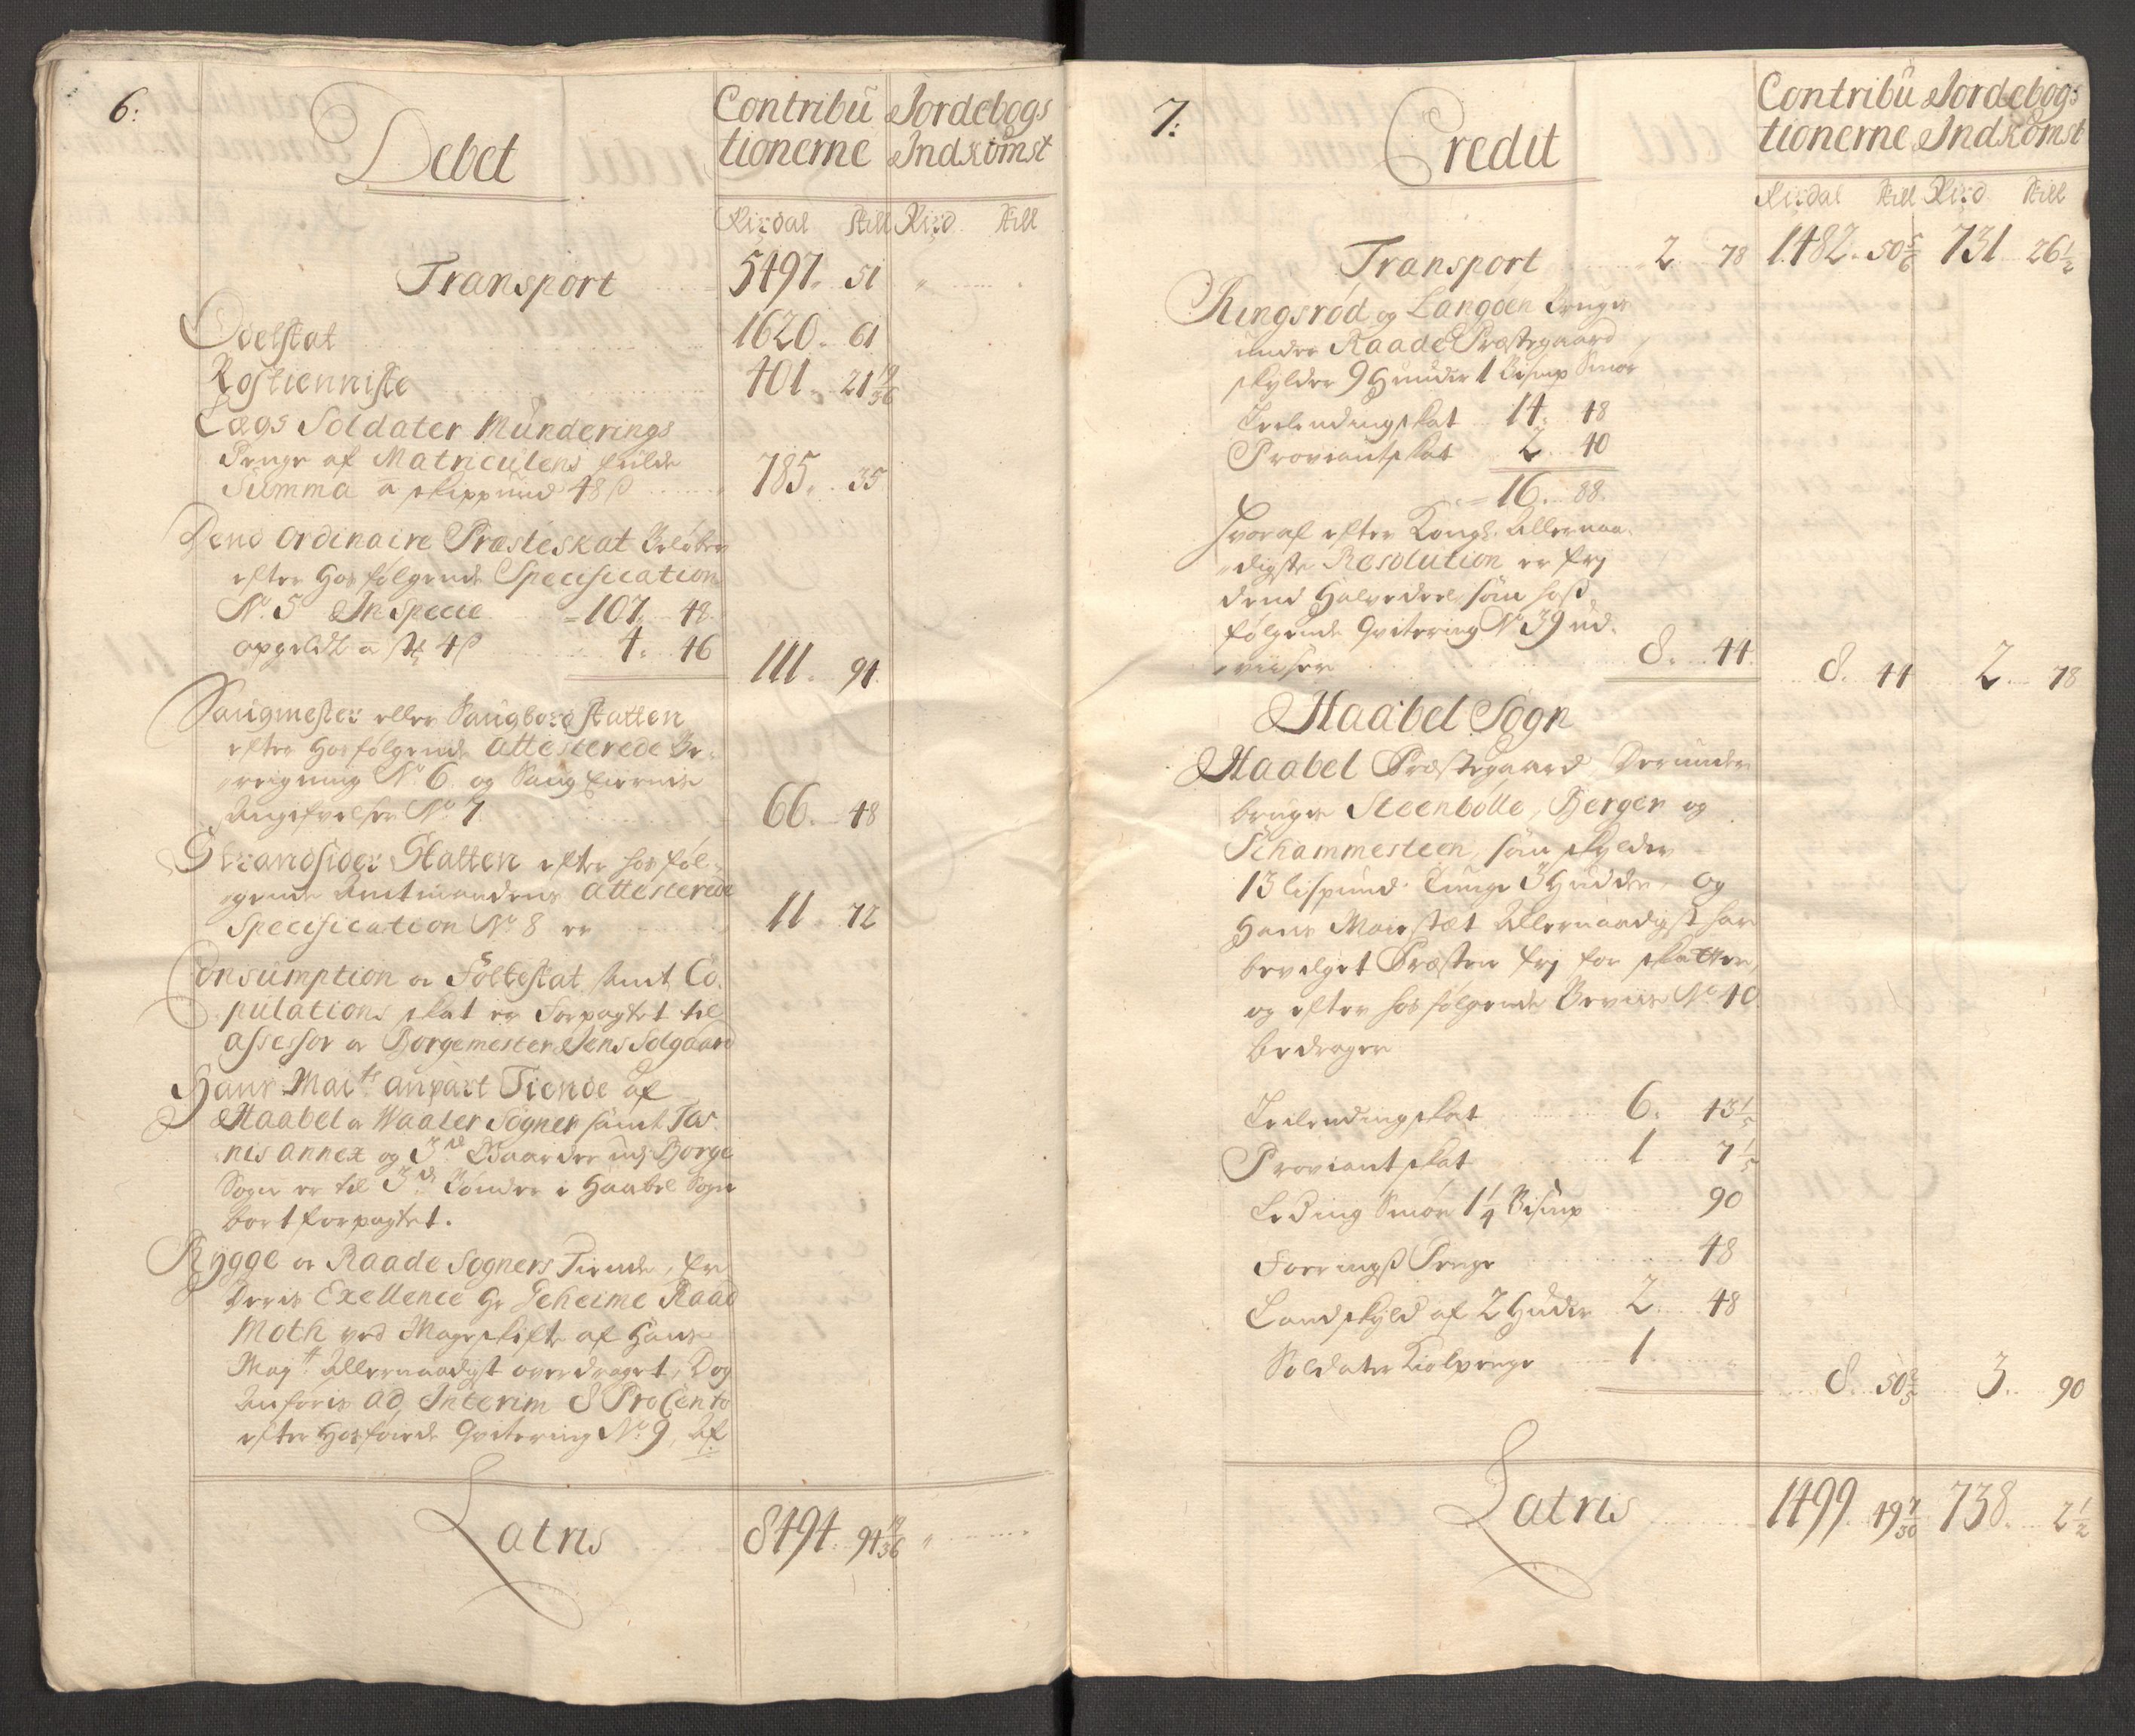 6:
Debet
Contribu
tionerne
Jordebogs
Indkomst
Rixdal Skill Rixd. Skill
Transport 5497. 51 " "
Odelskat 1620. 61
Rostienniste 401. 21 19/36
Lægs Soldater Munderings
Penge af Matriculens fulde
Summa a skippund 48 β 785. 35
Dend Ordinaire Præsteskat beløber
efter Hosfølgende Specification
No. 5 In Specie 107. 48
opgeldt a Rd 4 β 4. 46
111. 94
Saugmester eller Saugbord skatten
efter Hosfølgende Attesterede Be-
reigning No. 6 og Saug Eiernis
Angifvelser No. 7 66. 48
Strandsider Skatten efter hosføl-
gende Amtmandens Attesterede
Specification No. 8 er 11. 72
Consumption oc Folkeskat samt Co-
pulations skat er Forpagtet til
Assessor oc Borgemester Jens Solgaard
Hans Maits anpart Tiende af
Haabel oc Waaler Sogner samt
nis annex og 3de Gaarder udj Borge
Sogn er til 3de Bønder i Haabel Sogn
bortforpagtet.
Rygge oc Raade Sogners Tiende, er
Deris Exellence Hr Geheime Raad
Moth ved Mageskifte af Hans
Mayts Allernaadigst overdraget, Dog
Anføris ad Interim 8 Pro Cento
efter Hosføiede Qvitering No. 9, Af
Latris 8494. 94 19/36 " "
7:
Credit
Contribu
tionerne
Jordebogs
Indkomst
Rixdal Skill Rixd. Skill
Transport 2 78 1482. 50 5/6 731 26 1/2
Ringsrød og Langøen bruges
under Raade Præstegaard,
skylder 9 Hunder 1 Bismp Smør
Leilendingskat 14. 48
Proviantskat 2. 40
16. 88
Hvoraf efter Kongl. Allernaa-
digste Resolution er frj
dend Halvedeel som hoss-
følgende Qvitering No. 39 ud-
viiser 8. 44 8. 44 2. 78
Haabel Sogn
Haabel Præstegaard, Derunder
bruges Steenbølle, Bergen og
Schammesteen, som skylder
13 lispund Tunge 3 Hudder, og
Hans Maiestæt Allernaadigst har
bevelget Præsten frj for skatter,
og efter hosfølgende Beviis No. 40
bedrager
Leilendingskat 6. 43 1/5
Proviantskat 1 7 1/5
Leding Smør 1 1/4 Bismp 90
Foerings Penge 48
Landskyld af 2 Huder 2. 48
Soldater Kiolpenge 1 "
8. 50 2/5 3. 90
Latris 1499. 49 7/30 738. 2 1/2